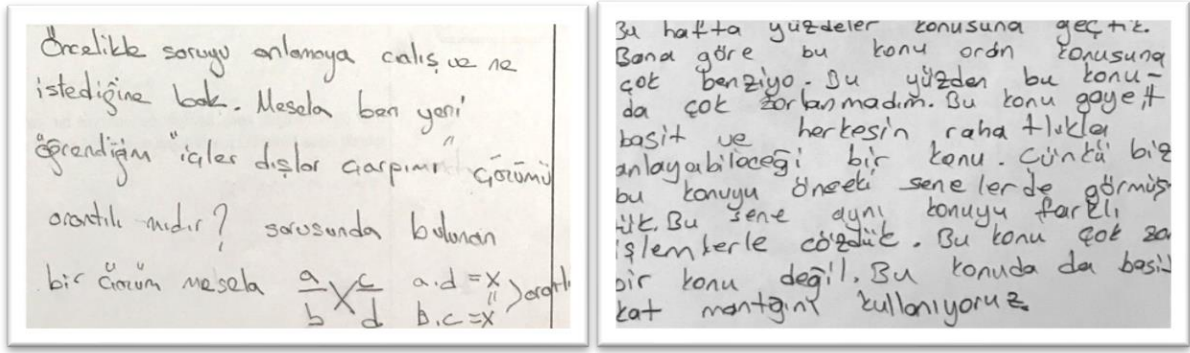 Öncelikle soruyu anlamaya çalış ve ne
istediğine bak. Mesela ben yeni
öğrendiğim "içler dışlar çarpımı" çözümü
orantılı mıdır? sorusunda bulunan
bir çözüm mesela a/b X c/d a.d = X
b.c = X
Bu hafta yüzdeler konusuna geçtik.
Bana göre bu konu oran konusuna
çok benziyo. Bu yüzden bu konu-
da çok zorlanmadım. Bu konu gayet
basit ve herkesin rahatlıkla
anlayabileceği bir konu. Çünkü biz
bu konuyu önceki senelerde görmüş
ük. Bu sene aynı konuyu farklı
işlemlerle çözdük. Bu konu çok zo
bir konu değil. Bu konuda da basit
kat mantığını kullanıyoruz.